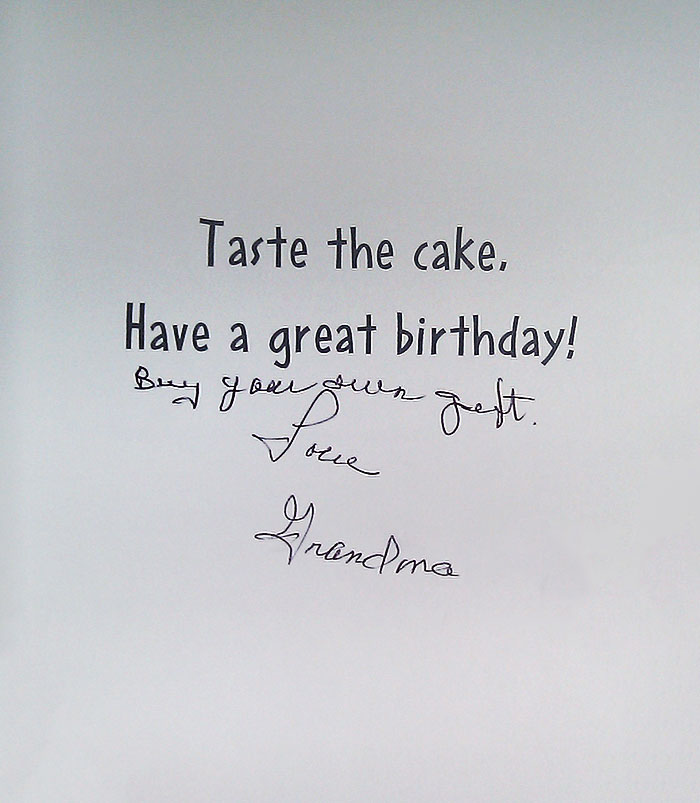 Taste the cake,
Have a great birthday!
Buy your own gift.
Love
Grandma